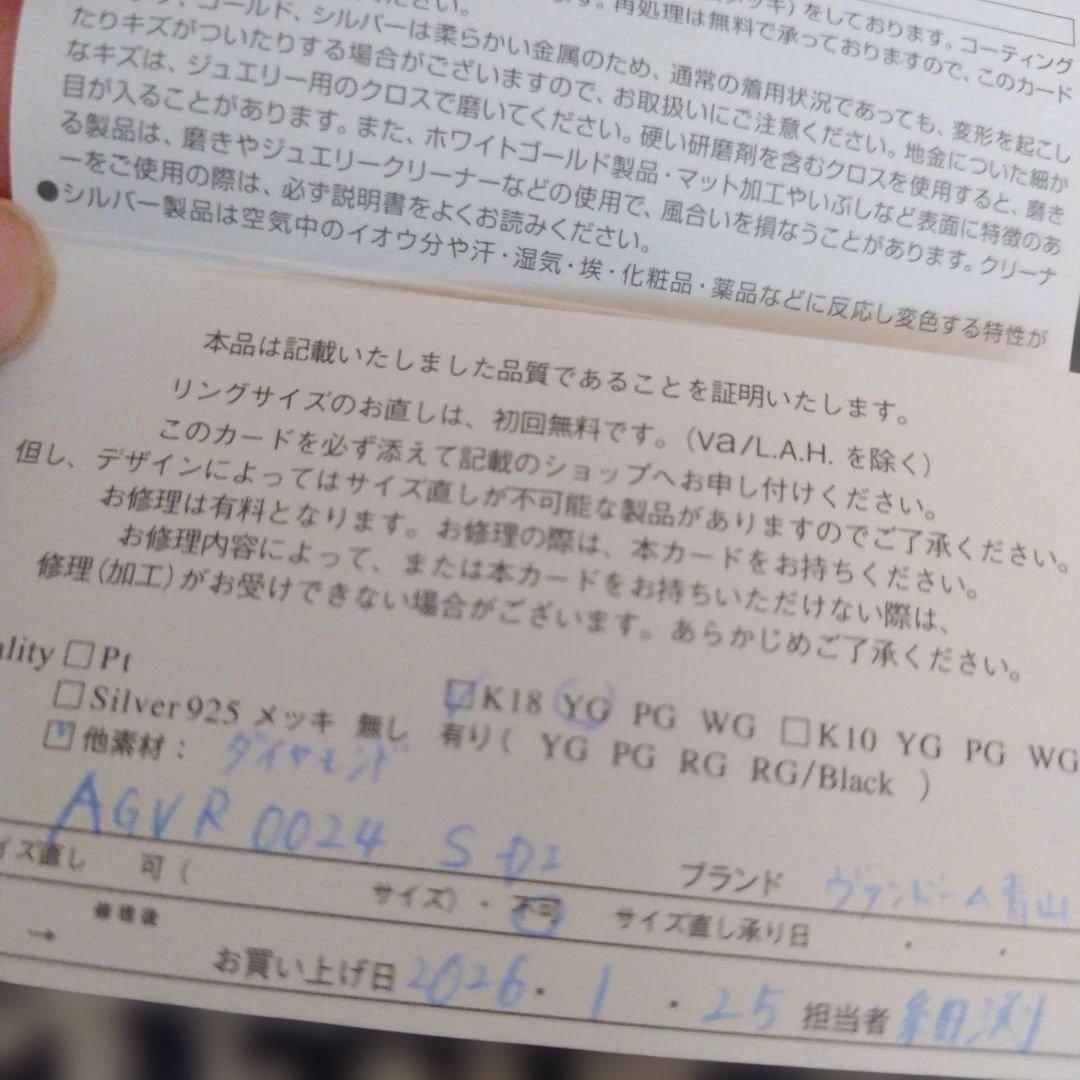 ださい。
メッキ)をしております。コーティング
す。再処理は無料で承っておりますので、このカード
ゴールド、シルバーは柔らかい金属のため、通常の着用状況であっても、変形を起こし
たりキズがついたりする場合がございますので、お取扱いにご注意ください。地金についた細か
なキズは、ジュエリー用のクロスで磨いてください。硬い研磨剤を含むクロスを使用すると、磨き
目が入ることがあります。また、ホワイトゴールド製品・マット加工やいぶしなど表面に特徴のあ
る製品は、磨きやジュエリークリーナーなどの使用で、風合いを損なうことがあります。クリーナ
ーをご使用の際は、必ず説明書をよくお読みください。
●シルバー製品は空気中のイオウ分や汗・湿気・埃・化粧品・薬品などに反応し変色する特性が
本品は記載いたしました品質であることを証明いたします。
リングサイズのお直しは、初回無料です。(va/L.A.H. を除く)
このカードを必ず添えて記載のショップへお申し付けください。
但し、デザインによってはサイズ直しが不可能な製品がありますのでご了承ください。
お修理は有料となります。お修理の際は、本カードをお持ちください。
お修理内容によって、または本カードをお持ちいただけない際は、
修理(加工)がお受けできない場合がございます。あらかじめご了承ください。
ality □Pt ☑K18 YG PG WG □K10 YG PG WG
□Silver925 メッキ 無し 有り( YG PG RG RG/Black )
☑他素材: ダイヤモンド
AGVR 0024 S DI ブランド ヴァンドーム青山
イズ直し 可( サイズ)・不可 サイズ直し承り日 ・ ・
修理後
→ お買い上げ日 2026・1・25 担当者 細渕